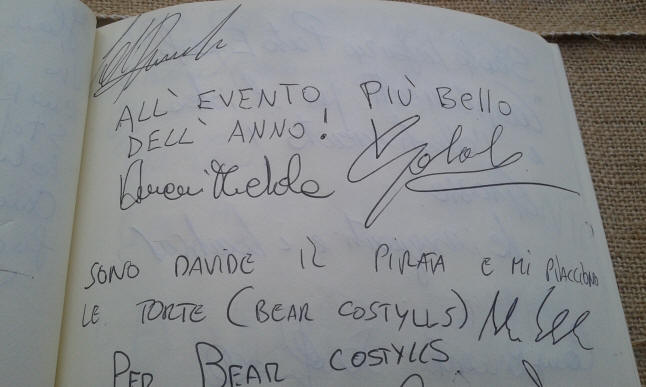 ALL' EVENTO PIÙ BELLO
DELL' ANNO!
SONO DAVIDE IL PIRATA E MI PIACCIONO
LE TORTE (BEAR COSTYLLS)
PER BEAR COSTYLLS